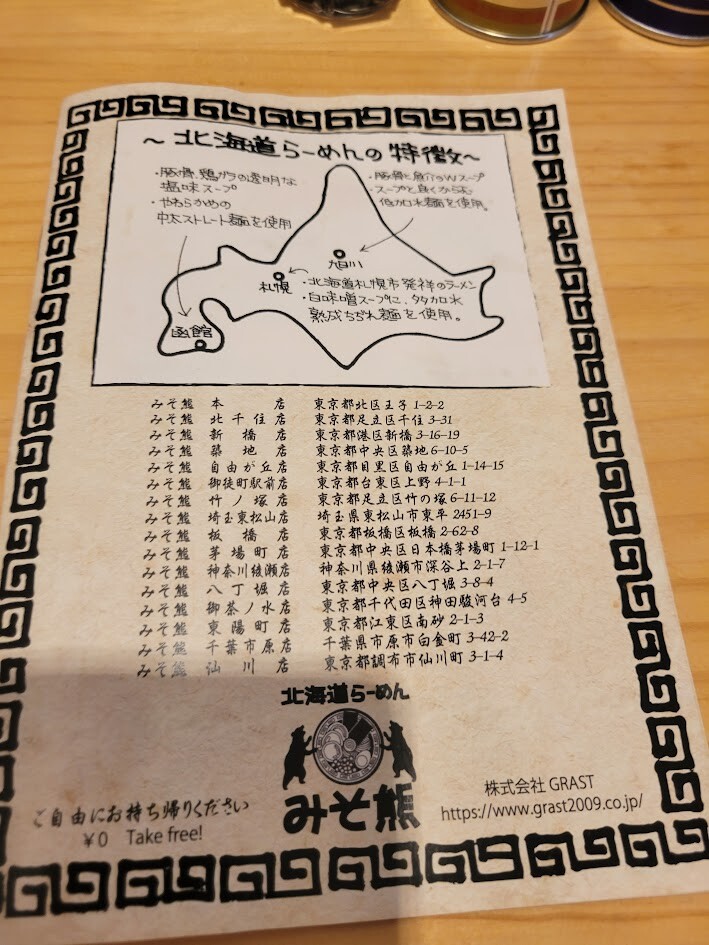 ～北海道らーめんの特徴～
・豚骨、鶏ガラの透明な
塩味スープ
・やわらかめの
中太ストレート麺を使用
・豚骨と魚介のWスープ
・スープと良くからむ
低加水麺を使用。
旭川
札幌
・北海道札幌市発祥のラーメン
・白味噌スープに、多加水
熟成ちぢれ麺を使用。
函館
みそ熊 本店 東京都北区王子 1-2-2
みそ熊 北千住店 東京都足立区千住 3-31
みそ熊 新橋店 東京都港区新橋 3-16-19
みそ熊 築地店 東京都中央区築地 6-10-5
みそ熊 自由が丘店 東京都目黒区自由が丘 1-14-15
みそ熊 御徒町駅前店 東京都台東区上野 4-1-1
みそ熊 竹ノ塚店 東京都足立区竹の塚 6-11-12
みそ熊 埼玉東松山店 埼玉県東松山市東平 2451-9
みそ熊 板橋店 東京都板橋区板橋 2-62-8
みそ熊 茅場町店 東京都中央区日本橋茅場町 1-12-1
みそ熊 神奈川綾瀬店 神奈川県綾瀬市深谷上 2-1-7
みそ熊 八丁堀店 東京都中央区八丁堀 3-8-4
みそ熊 御茶ノ水店 東京都千代田区神田駿河台 4-5
みそ熊 東陽町店 東京都江東区南砂 2-1-3
みそ熊 千葉市原店 千葉県市原市白金町 3-42-2
みそ熊 仙川店 東京都調布市仙川町 3-1-4
北海道らーめん
みそ熊
ご自由にお持ち帰りください
￥0 Take free!
株式会社 GRAST
https://www.grast2009.co.jp/